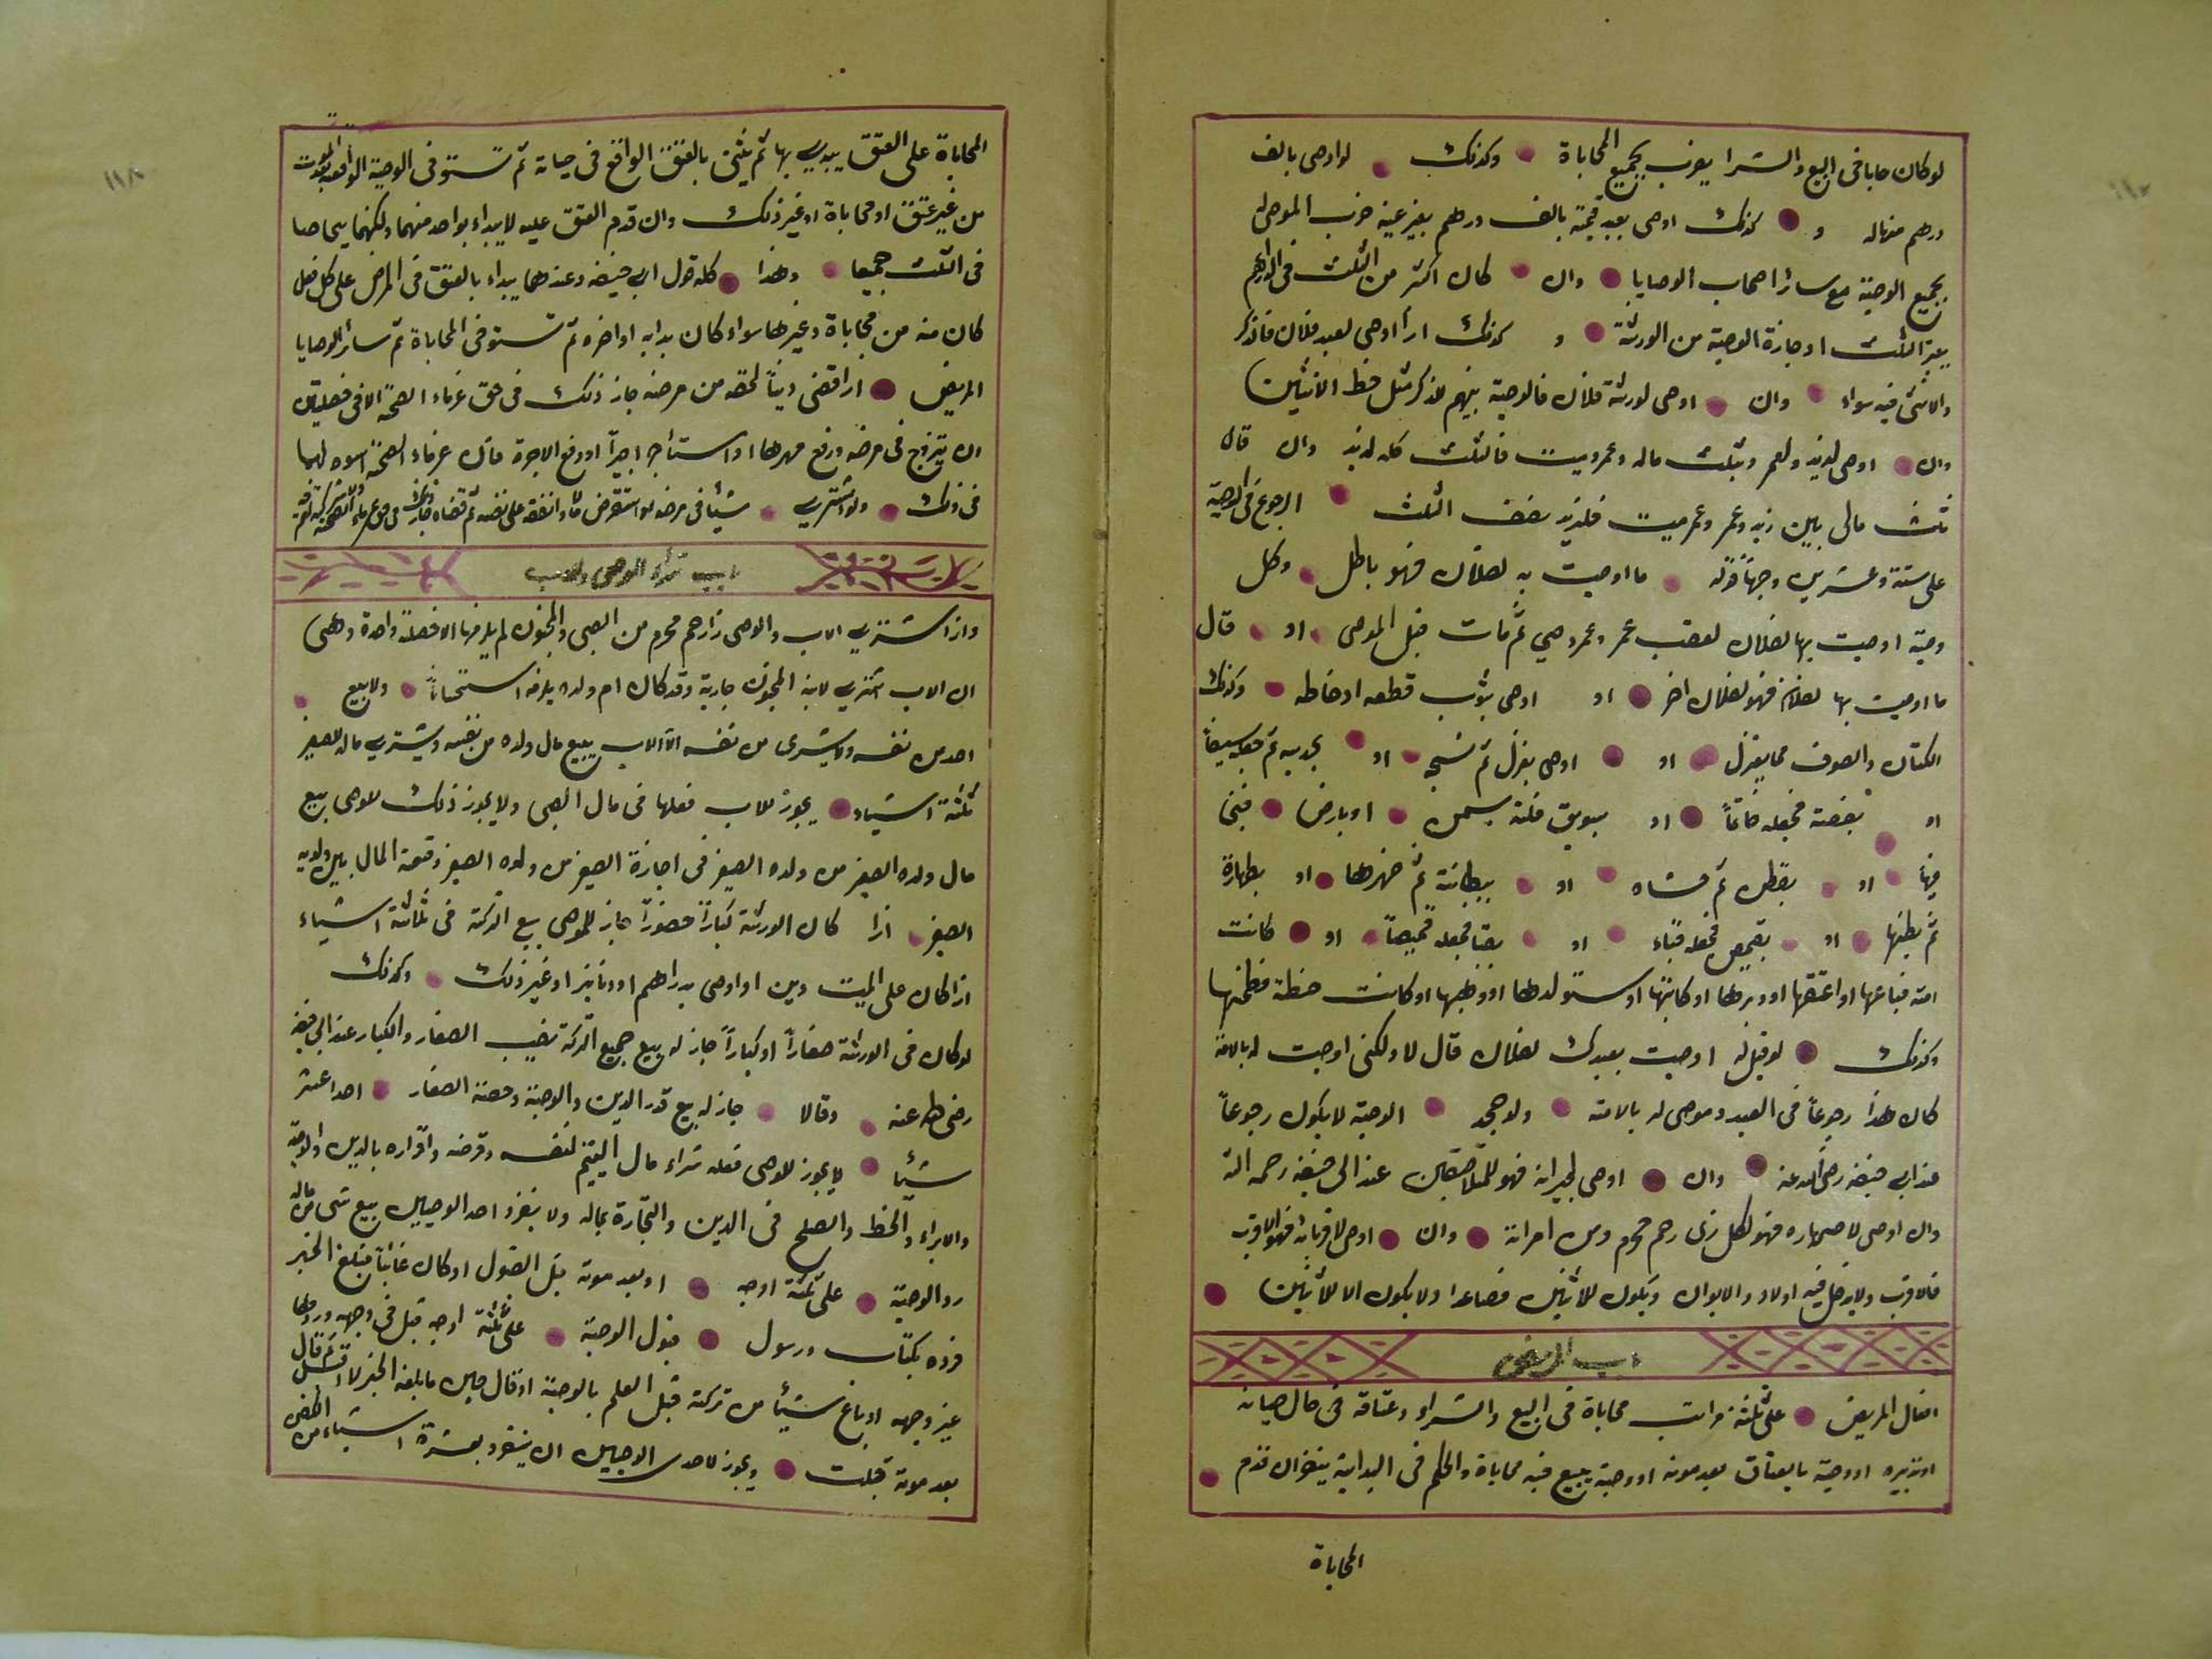 لوكان حابا فى البيع والشرا يضرب بجميع المحاباة وكذلك لو اوصى بالف
درهم منهاله و كذلك اوصى بعبد قيمته بالف درهم بغير عينه ضرب الموصى له
بجميع الوصية مع سائر اصحاب الوصايا وان كان اكثر من الثلث فى الدراهم
بغير الثلث اوجازة الوصية من الورثة و كذلك اذا اوصى لعبد فلان فالذكر
والانثى فيه سواء وان اوصى لورثة فلان فالوصية بينهم للذكر مثل حظ الانثيين
وان اوصى لزيد ولعمر وبثلث ماله وعمر وميت فالثلث كله لزيد وان قال
ثلث مالى بين زيد وعمر وعمر ميت فلزيد نصف الثلث الرجوع فى الوصية
على ستة وعشرين وجهاً قوله ما اوصيت به لفلان فهو باطل وكل
وصية اوصيت بها لفلان لعقب عمر وعمرو حي ثم مات قبل الموصى او قال
ما اوصيت بها لفلان فهو لفلان اخر او اوصى بثوب قطعه او خاطه وكذلك
الكتان والصوف مما يغزل او اوصى بغزل ثم نسجه او بحديد ثم جعله سيفاً
او بفضة فجعله خاتماً او بسويق فلته بسمن او بارض فبنى
فيها او بقطن ثم حشاه او ببطانة ثم ظهرها او بظهارة
ثم بطنها او بقميص فجعله قباء او بقبا فجعله قميصاً او كانت
امته فباعها او اعتقها او دبرها او كاتبها او ستولدها او وهبها او كانت حنطة فطحنها
وكذلك لو قيل له اوصيت بعبدك لفلان قال لا ولكنى اوصيت له بالامة
كان هذا رجوعاً فى العبد وموصى له بالامة ولو جحد الوصية لا يكون رجوعاً
عند ابى حنيفه رضى الله عنه وان اوصى لجيرانه فهو للملاصقين عند ابى حنيفه رحمه الله
وان اوصى لاصهاره فهو لكل ذى رحم محرم ومن امرأته وان اوصى لاقربائه فهو للاقرب
فالاقرب ولا يدخل فيه اولاد والابوان ويكون للاثنين فصاعدا ولا يكون الا للاثنين
باب المريض
افعال المريض على ثلثة مراتب محاباة فى البيع والشراء وعتاقه فى حال حياته
اوتدبيره او وصية بالعتاق بعد موته او وصية ببيع فيه محاباة والحكم فى البداية ينظر ان قدم
المحاباة
المحاباة على العتق يبدى بها ثم يثنى بالعتق الواقع فى حياته ثم تستوفى الوصية الواقعة بعد الموت
من غير عتق او محاباة او غير ذلك وان قدم العتق عليه لا يبداء بواحد منهما ولكنهما يتحاصا
فى الثلث جميعا وهذا كله قول ابى حنيفه وعندهما يبداء بالعتق فى المرض على كل فعل
كان منه من محاباة وغيرها سواء كان بدابه او اخره ثم تستوفى المحاباة ثم سائر الوصايا
المريض اذا قضى ديناً لحقه من مرضه جاز ذلك فى حق غرماء الصحة الا فى خصلتين
ان يتزوج فى مرضه ودفع مهرها او استأجر اجيراً او دفع الاجرة فان غرماء الصحة اسوه لهما
فى ذلك ولو اشترى شيئا فى مرضه او استقرض مالاً وانفقه على نفسه ثم قضاه
باب شراء الوصى والاب
واذا اشترى الاب والوصى ذا رحم محرم من الصبى والمجنون لم يلزمها الا خصلة واحدة وهى
ان الاب اشترى لابنه المجنون جارية وقد كان ام ولده يلزمه استحساناً ولا يبيع
احد من نفسه ولا يشرى من نفسه الا الاب يبيع مال ولده من نفسه ويشترى مال الصغير
ثلثة اشياء يجوز للاب فعلها فى مال الصبى ولا يجوز ذلك للوصى بيع
مال ولده الصغير من ولده الصغير فى اجازة الصغير من ولده الصغير وقسمة المال بين ولديه
الصغير اذا كان الورثة كباراً حضوراً جاز للموصى بيع التركة فى ثلاثة اشياء
اذا كان على الميت دين او اوصى بدراهم او دنانير او غير ذلك وكذلك
لو كان فى الورثة صغاراً او كباراً جاز له بيع جميع التركة نصيب الصغار والكبار عند ابى حنيفه
رضى الله عنه وقالا جاز له بيع قدر الدين والوصية وحصة الصغار احد اعشر
شيئا لا يجوز للوصى فعله شراء مال اليتيم لنفسه وقرضه واقراره بالدين والوصية
والابراء والحط والصلح فى الدين والتجارة بماله ولا ينفرد احد الوصيين ببيع شى من ماله
رد الوصية على ثلثة اوجه او بعد موته قبل القبول او كان غائباً فبلغ الخبر
فرده بكتاب ورسول قبول الوصية على ثلثة اوجه قبل فى وجهه وردها
غير وجهه او باع شيئا من تركته قبل العلم بالوصية او قال حين ما بلغه الخبر لا اقبل ثم قال
بعد موته قبلت ويجوز لاحدى الوصيين ان ينفرد بعشرة اشياء من